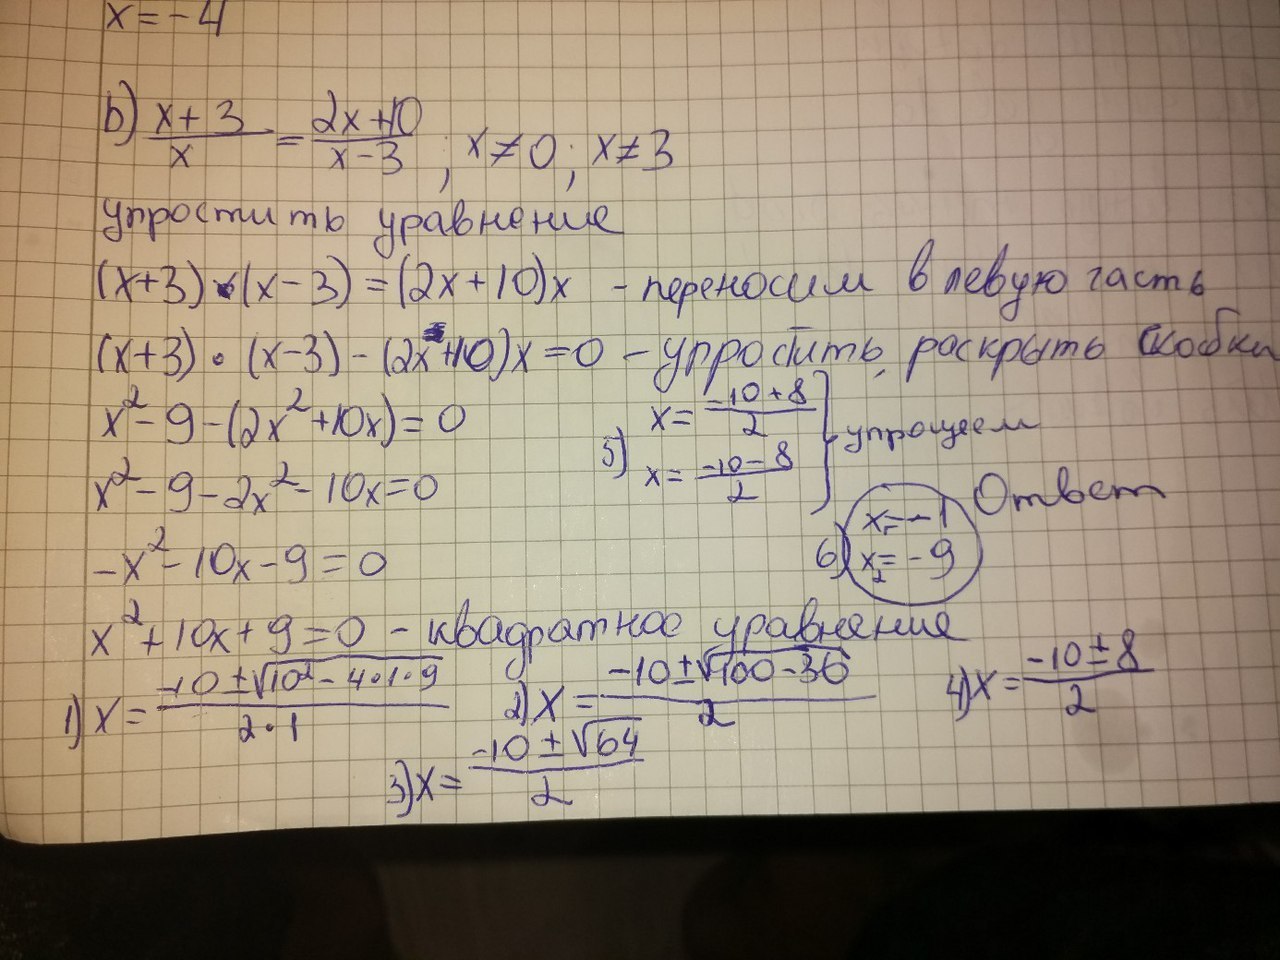 x = -4
b) \frac{x+3}{x} = \frac{2x+10}{x-3} ; x≠0; x≠3
упростить уравнение
(x+3)·(x-3)=(2x+10)x - переносим в левую часть
(x+3)·(x-3)-(2x+10)x=0 - упростить, раскрыть скобки
x²-9-(2x²+10x)=0
x²-9-2x²-10x=0
-x²-10x-9=0
x²+10x+9=0 - квадратное уравнение
1) x = \frac{-10±√(10²-4·1·9)}{2·1}
2) x = \frac{-10±√(100-36)}{2}
3) x = \frac{-10±√64}{2}
4) x = \frac{-10±8}{2}
5) x = \frac{-10+8}{2}
x = \frac{-10-8}{2} } упрощаем
6) x₁=-1
x₂=-9
Ответ